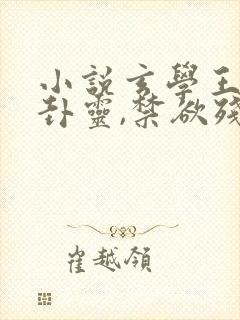 小說玄學王
卦靈,禁欲殘
崔越領